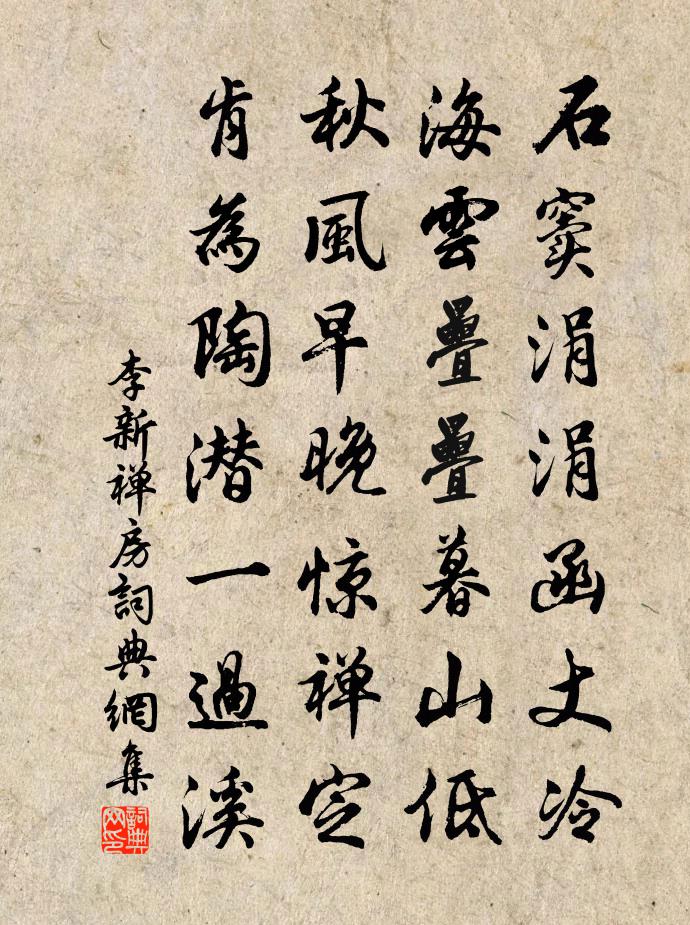 石竇涓涓函丈冷
海雲疊疊暮山低
秋風早晚惊禅定
肯為陶潛一過溪
李新禅房詞典網集
詞典網印